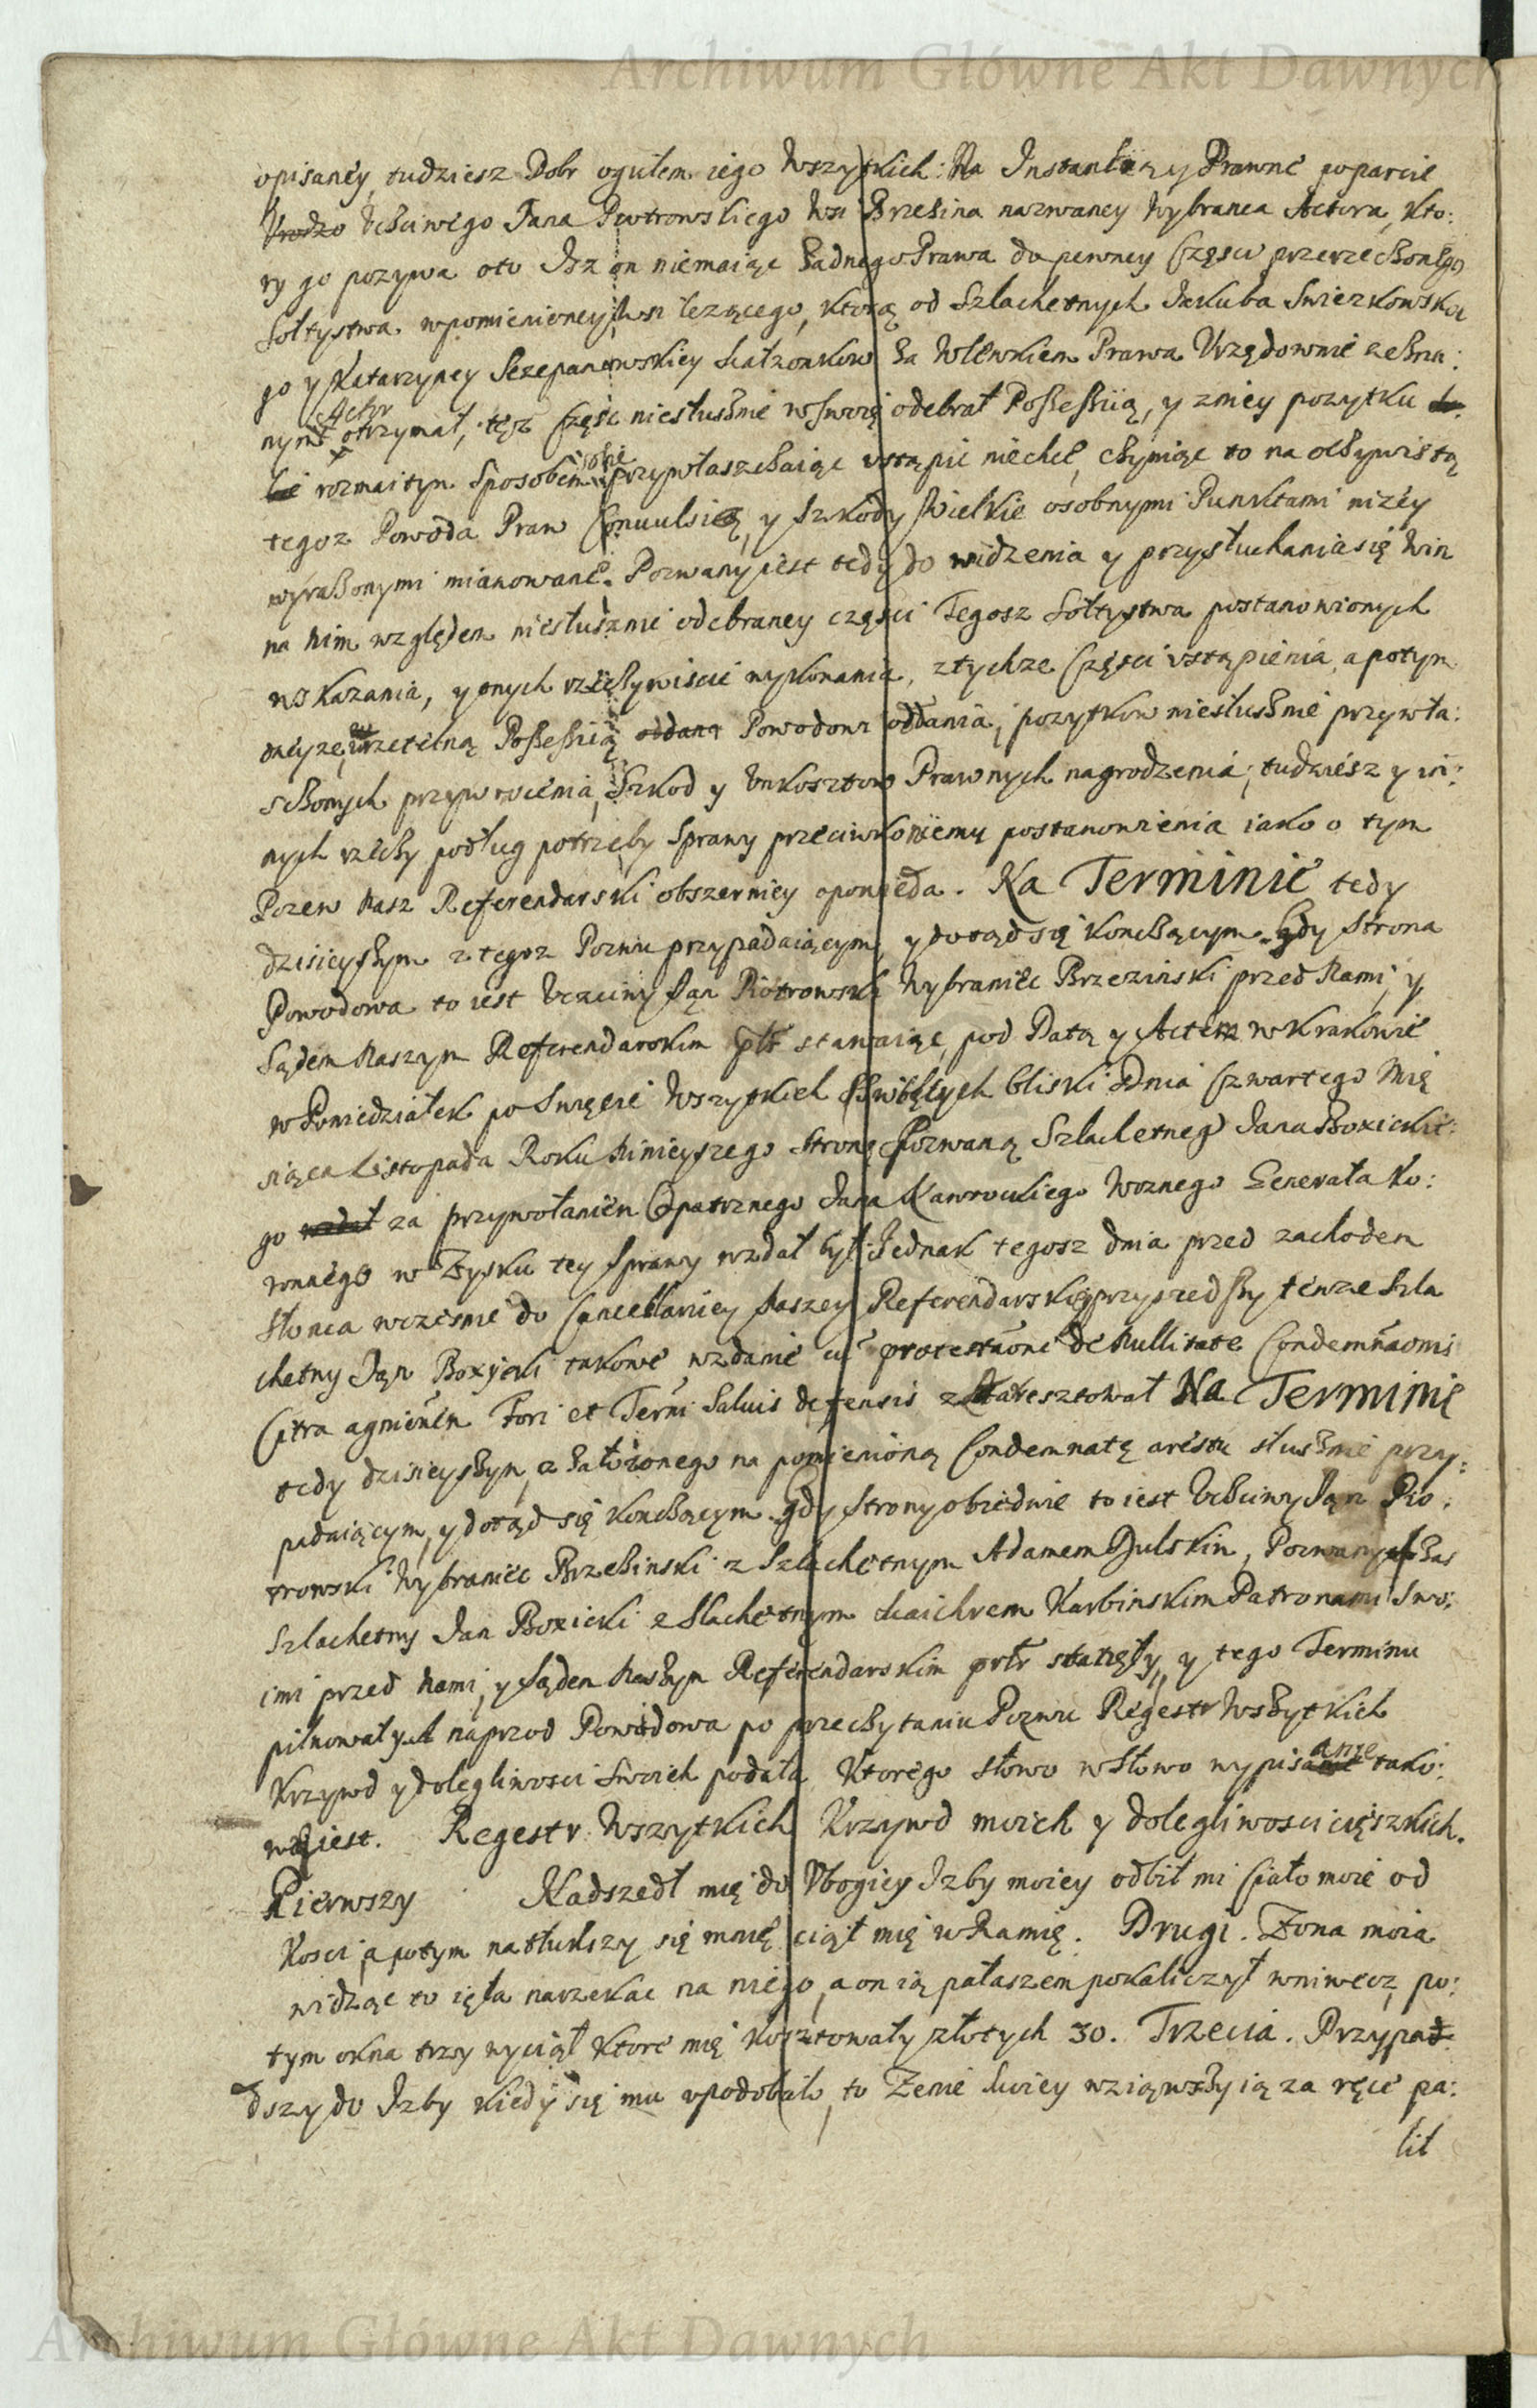 Archiwum Główne Akt Dawnych
opisaney, tudziesz Dobr ogułem iego Wszytkich: Na Instantią y Prawne poparcie
Urodzo Uczciwego Jana Piotrowskiego Wsi Brzezina nazwaney Wybranca Actora, kto:
ry go pozywa oto Isz on niemaiąc żadnego Prawa do pewney Częsci przerzeczonego
Sołtystwa wpomienioney Wsi leżącego, ktorą od Szlachetnych Jakuba Swierkowskie
go y Katarzyney Sczepanowskiey Małzonkow za Wlewkiem Prawa Urzędownie zezna:
nym Actor otrzymał, tęż Częsc niesłusznie wswoię odebrał Possessiią, y zniey pozytku
rozmaitym Sposobem sobie przywłaszczaiąc ustąpic niechce, czyniąc to na oczywistą
tegoz Powoda Praw Convulsią, y szkody Wielkie osobnymi Punktami nizey
wyrażonymi mianowane. Pozwany iest tedy do widzenia y przysłuchania się Win
na Nim względem niesłusznie odebraney części Tegosz Sołtystwa postanowionych
wskazania, y onych rzeczywiscie wykonania, ztychze Części ustąpienia, a potym
oneyze, w rzetelną Possessiią oddana Powodowi oddania, pozytkow niesłusznie przywła:
sczonych przywrocenia, Szkod y Unkosztow Prawnych nagrodzenia; tudziesz y in:
nych rzeczy podług potrzeby Sprawy przeciwko niemu postanowienia iako o tym
Pozew Nasz Referendarski obszerniey opowieda. Na Terminie tedy
dzisieyszym z tegoz Pozwu przypadaiącym, y dotąd się konczącym. Gdy Strona
Powodowa to iest Uczciwy Jan Piotrowski Wybraniec Brzezinski przed Nami, y
Sądem Naszym Referendarskim ptr stawaiąc, pod Datą y Actem w Krakowie
w Poniedziałek po Swięcie Wszytkich Swiętych bliski Dnia Czwartego Mie
siąca Listopada Roku Ninieyszego Stronę Pozwaną Szlachetnego Jana Boxickie:
go wzdał za przywołaniem Opatrznego Jana Kawrockiego Woznego Generała Ko:
ronnego w Zysku tey Sprawy wzdał był. Jednak tegosz dnia przed zachodem
Słonca wczesnie do Cancellariey Naszey Referendarskiey przyszedszy tenze Szla
chetny Jan Boxycki takowe wzdanie cu protestaone de Nullitate Condemnaonis
Citra agnionem Fori et Termi Salvis defensis zAaresztował Na Terminie
tedy dzisieyszym, z założonego na pomienioną Condemnatę arestu słusznie przy:
padaiącym, y dotąd się konczącym. gdy Strony obiedwie to iest Uczciwy Jan Pio:
trowski Wybraniec Brzezinski z Szlachetnym Adamem Dulskim, Pozwany zas
Szlachetny Jan Boxicki z Slachetnym Maichrem Karbinskim Patronami Swo:
imi przed Nami, y Sądem Naszym Referendarskim prtr stanęły, y tego Terminu
pilnowały. A naprzod Powodowa po przeczytaniu Pozwu Regestr Wszytkich
Krzywd y dolegliwosci Swoich podała Ktorego słowo w słowo wypisanie tako:
we iest. Regestr Wszytkich Krzywd moich y dolegliwosci cięszkich.
Pierwszy Nadszedł mię do Ubogiey Izby moiey odbił mi ciało moie od
Kosci, a potym natłukszy się mnię ciął mię w Ramię. Drugi. Zona moia
widząc to ięła narzekac na niego, a on ią pałaszem pokaliczył wniwecz, po:
tym okna trzy wyciął ktore mię kosztowały złotych 30. Trzecia. Przypad
dszy do Izby kiedy się mu upodobało, to Zenie Moiey wziąwszy ią za ręce pa:
lil
Archiwum Główne Akt Dawnych